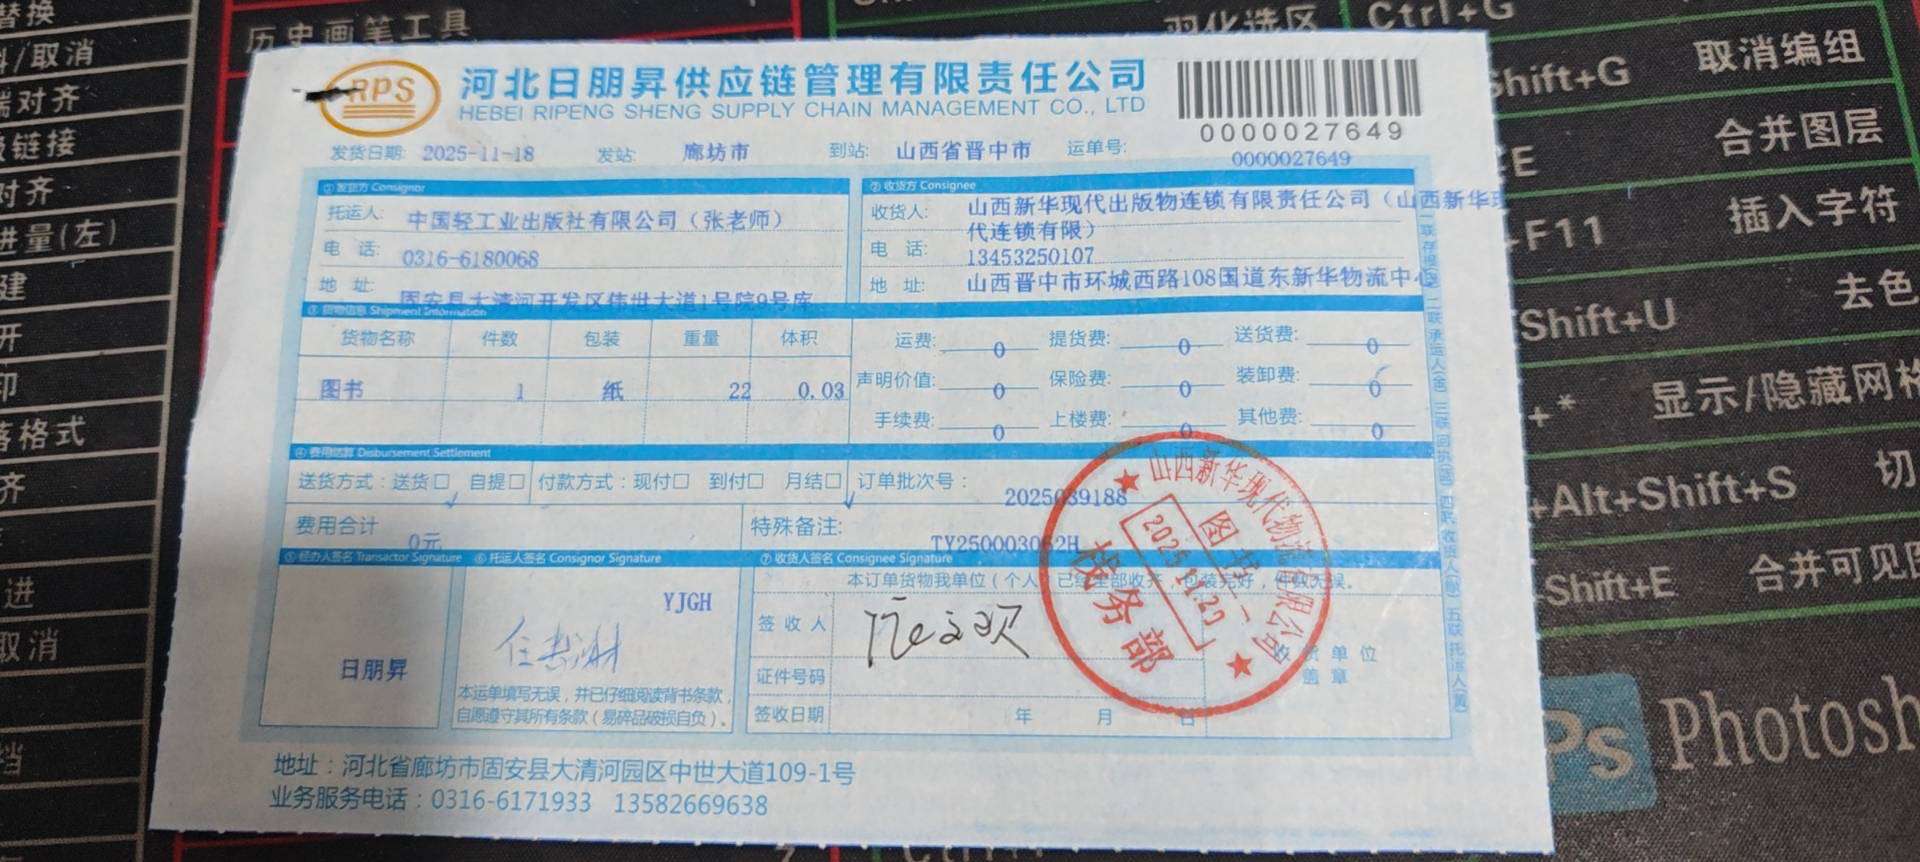 RPS
河北日朋昇供应链管理有限责任公司
HEBEI RIPENG SHENG SUPPLY CHAIN MANAGEMENT CO., LTD
0000027649
发货日期: 2025-11-18 发站: 廊坊市 到站: 山西省晋中市 运单号: 0000027649
①发货方 Consignor
托运人: 中国轻工业出版社有限公司（张老师）
电 话: 0316-6180068
地 址: 固安县大清河开发区伟世大道1号院9号库
②收货方 Consignee
收货人: 山西新华现代出版物连锁有限责任公司（山西新华现
代连锁有限）
电 话: 13453250107
地 址: 山西晋中市环城西路108国道东新华物流中心
③货物信息 Shipment Information
货物名称 件数 包装 重量 体积
图书 1 纸 22 0.03
运费: 0 提货费: 0 送货费: 0
声明价值: 0 保险费: 0 装卸费: 0
手续费: 0 上楼费: 0 其他费: 0
④费用结算 Disbursement Settlement
送货方式：送货□ 自提□ 付款方式：现付□ 到付□ 月结□ 订单批次号： 2025039188
费用合计 0元 特殊备注:
⑤经办人签名 Transactor Signature
日朋昇
⑥托运人签名 Consignor Signature
YJGH
本运单填写无误，并已仔细阅读背书条款，
自愿遵守其所有条款（易碎品破损自负）。
⑦收货人签名 Consignee Signature
本订单货物我单位（个人）已经全部收齐，包装完好，件数无误。
签收人
证件号码
签收日期 年 月 日
收货单位
盖章
山西新华现代物流有限公司
2025.11.23
业务部
地址：河北省廊坊市固安县大清河园区中世大道109-1号
业务服务电话：0316-6171933 13582669638
替换
/取消
对齐
链接
对齐
进量(左)
建
开
印
落格式
齐
进
取消
档
历史画笔工具
羽化选区 Ctrl+G
Shift+G 取消编组
合并图层
+F11 插入字符
Shift+U 去色
显示/隐藏网格
+Alt+Shift+S 切
Shift+E 合并可见图
Ps Photosh